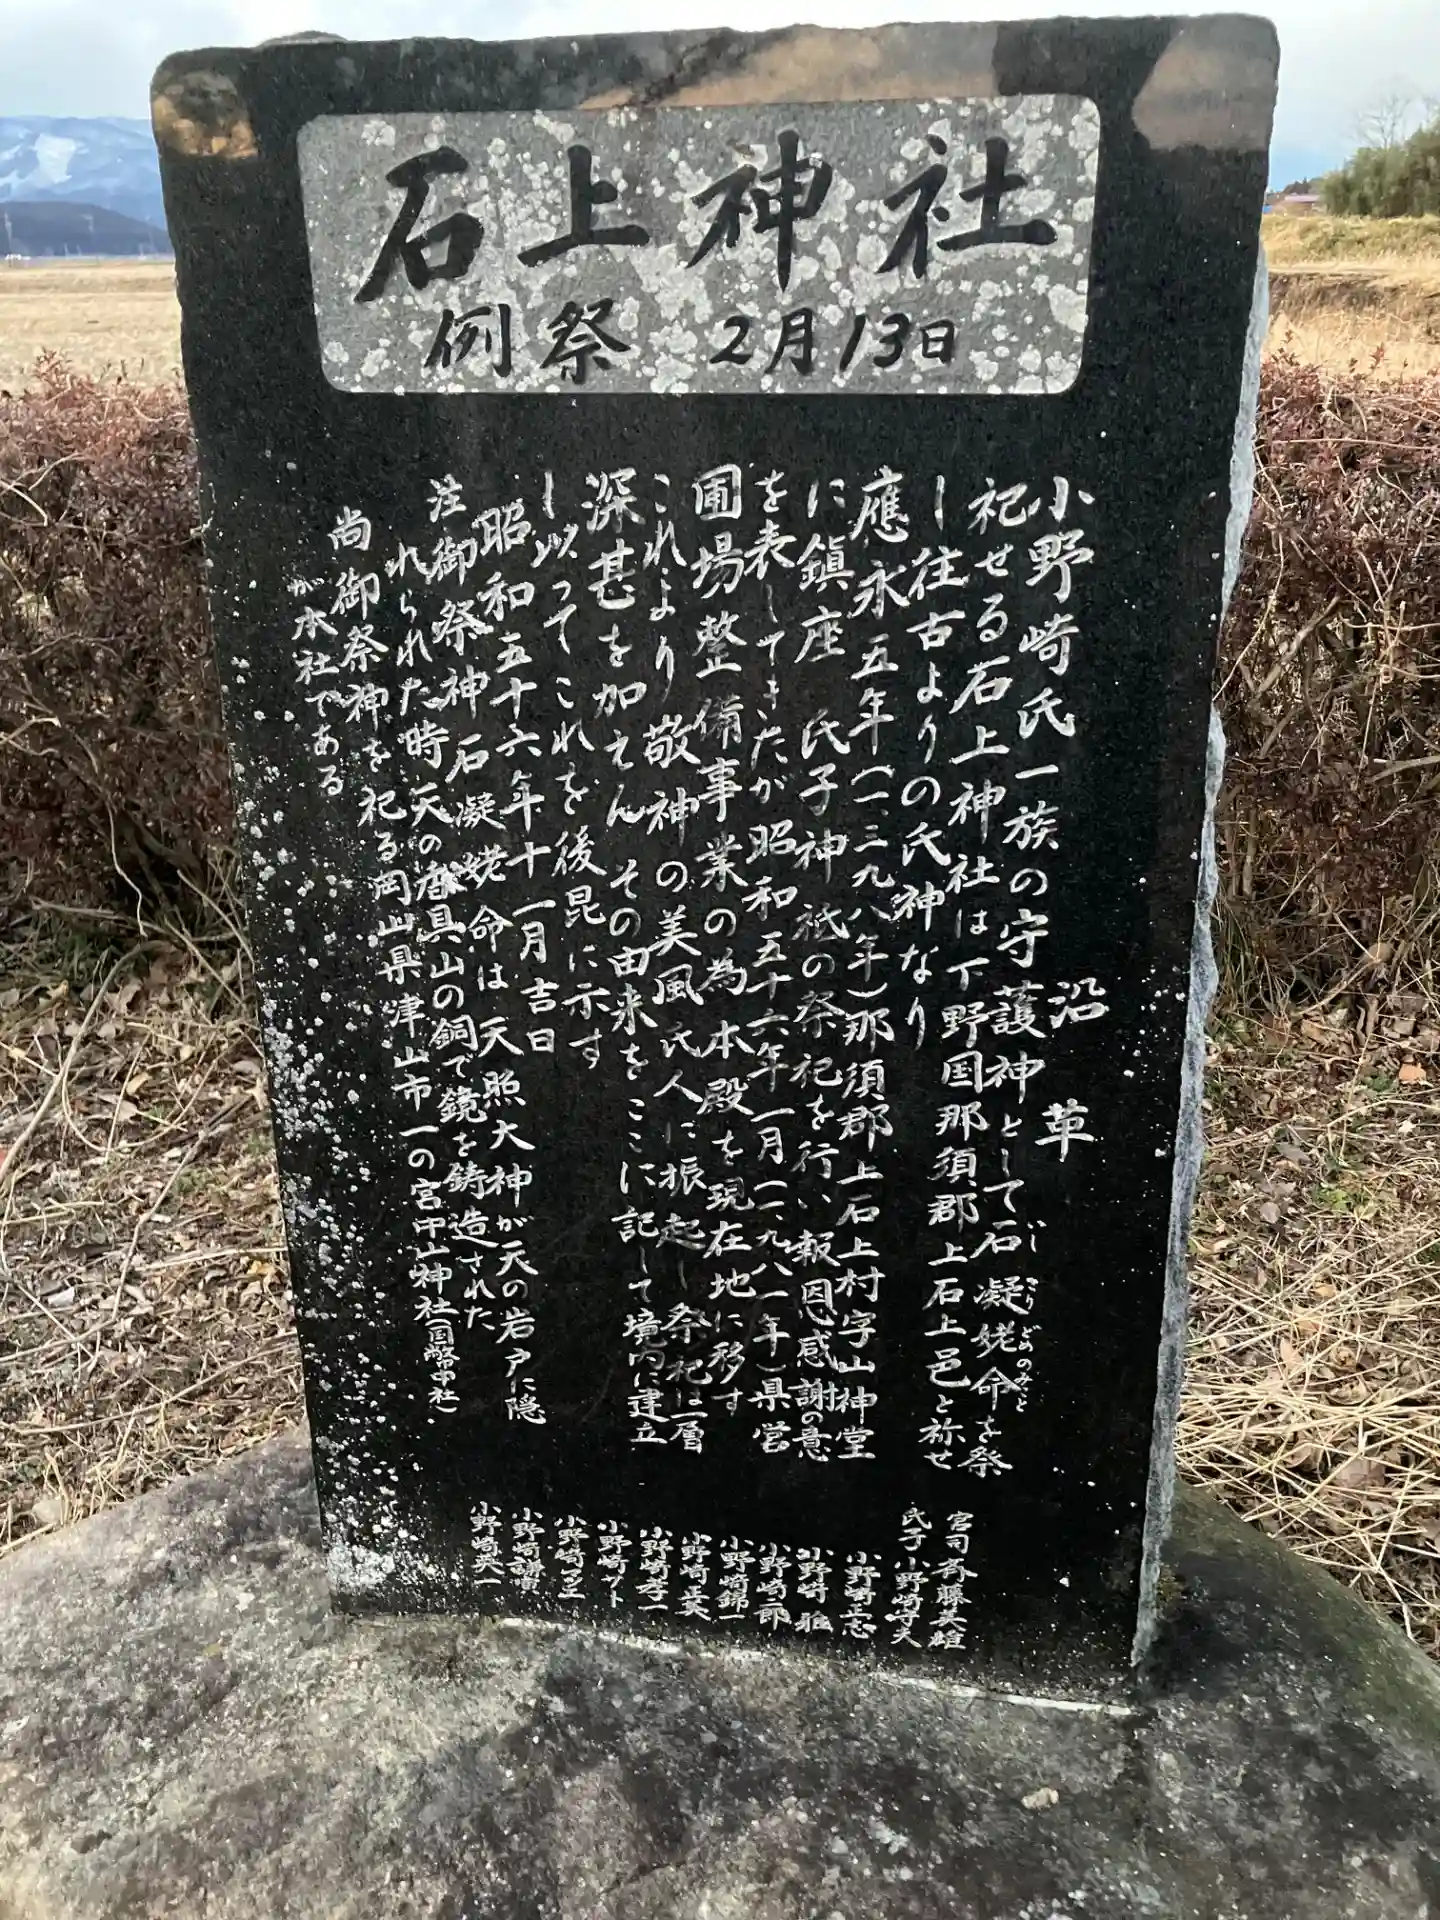 石上神社
例祭 2月13日
沿革
小野崎氏一族の守護神として石凝姥命を祭
いしこりどめのみこと
祀せる石上神社は下野国那須郡上石上邑と祢せ
し往古よりの氏神なり
應永五年(一三九八年)那須郡上石上村字山神堂
に鎮座 氏子神祇の祭祀を行い報恩感謝の意
を表してきたが昭和五十六年一月(一九八一年)県営
圃場整備事業の為本殿を現在地に移す
これより敬神の美風氏人に振起し祭祀は一層
深甚を加えん その由来をここに記して境内に建立
し以ってこれを後昆に示す
昭和五十六年十一月吉日
注御祭神石凝姥命は天照大神が天の岩戸に隠
れられた時天の香具山の銅で鏡を鋳造された
尚御祭神を祀る岡山県津山市一の宮中山神社(国幣中社)
が本社である
宮司 斉藤英雄
氏子 小野崎守夫
小野崎正志
小野崎 雅
小野崎一郎
小野崎錦一
小野崎正美
小野崎孝一
小野崎
小野崎
小野崎
小野崎英一